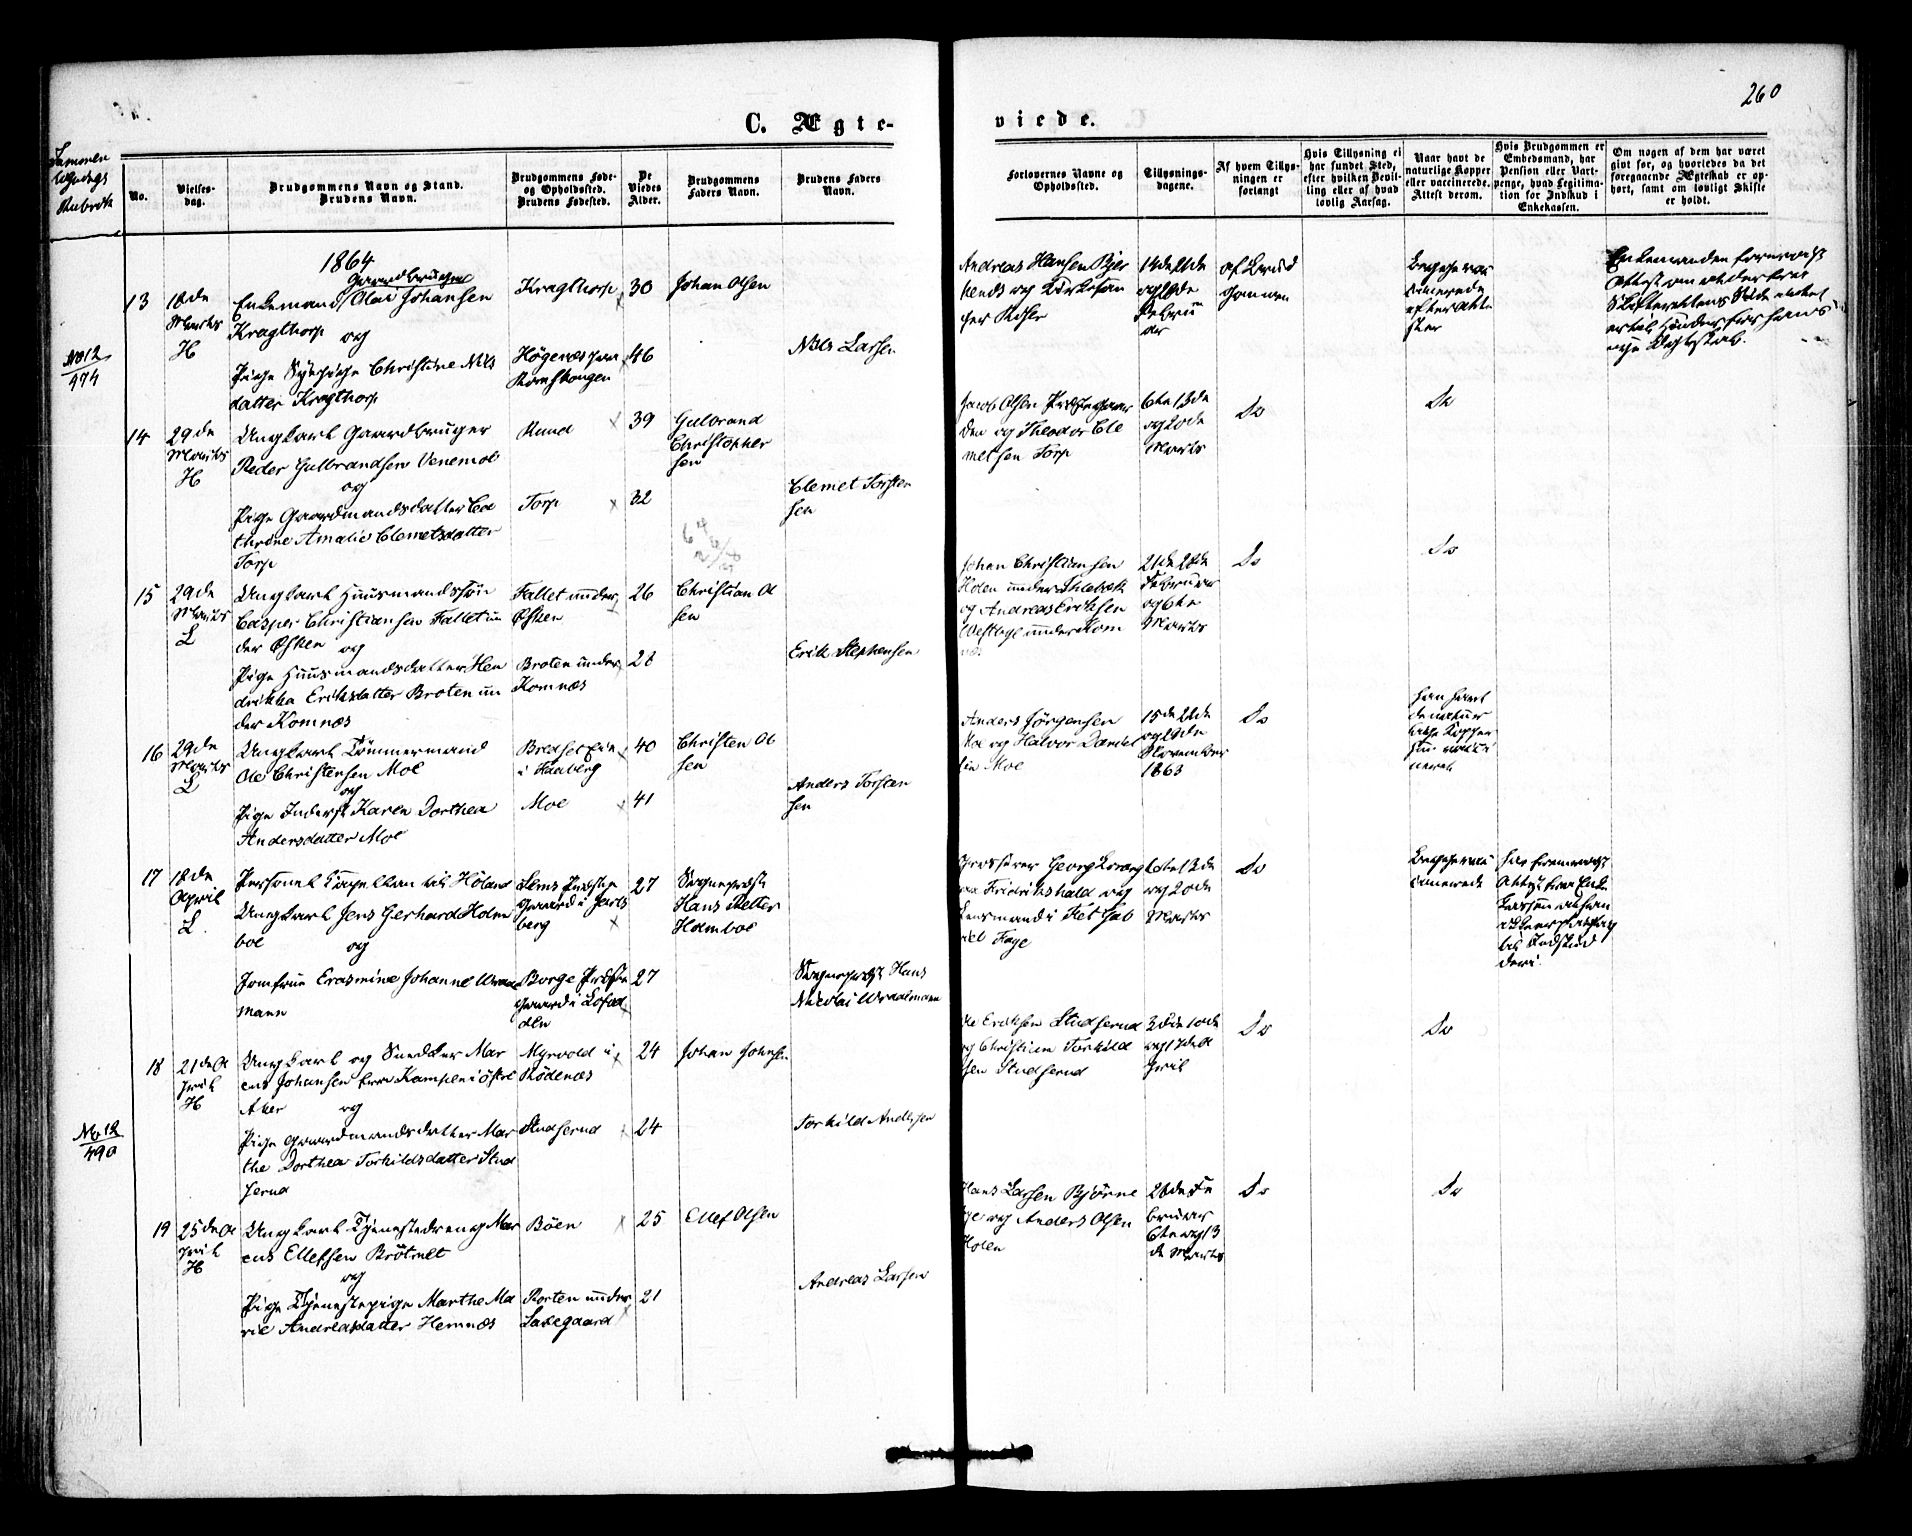 260
C. Ægte-
viede.
Sammen
lignings
Rubrik
No.
Vielses-
dag.
Brudgommens Navn og Stand.
Brudens Navn.
Brudgommens Føde-
og Opholdssted.
Brudens Fødested.
De
Viedes
Alder.
Brudgommens
Faders Navn.
Brudens Faders
Navn.
Forlovernes Navne og
Opholdssted.
Tillysnings-
dagene.
Af hvem Tillys-
ningen er
forlangt
Hvis Tillysning ei
har fundet Sted,
efter hvilken Bevil-
ling eller af hvad
lovlig Aarsag.
Naar havt de
naturlige Kopper
eller vaccinerede.
Attest derom.
Hvis Brudgommen er
Embedsmand, har
Pension eller Vart-
penge, hvad Legitima-
tion for Indskud i
Enkekassen.
Om nogen af dem har været
givt før, og hvorledes da det
foregaaende Ægteskab er op-
hørt, samt om lovligt Skifte
er holdt.
1864
13
18de
Marts
H
No 12
474
Gaardbruger
Enkemand Olai Johansen
Kragthorp
og
Pige Sypige Christine Nils
datter Kragthorp
Kragthorp
Högenæs
30
46
Johan Olsen
Nils Larsen
Andreas Hansen Bjer
14de 21de
og 28de
Februar
af Brud
gommen
Begge vac
cinerede
efter atte
ster
14
29de
Marts
H
Ungkarl Gaardbruger
Peder Gulbrandsen Venemoe
og
Pige Gaardmandsdatter Ca
thrine Amalie Clemetsdatter
Torp
Rund
Torp
39
32
Gulbrand
Christopher
sen
Clemet Torste
sen
Jacob Olsen Præstegaar
den og Theodor Cle
metsen Torp
6te 13de
og 20de
Marts
Do
Do
15
29de
Marts
L
Ungkarl Huusmandssön
Casper Christiansen Fallet un
der Østen
og
Pige Huusmandsdatter Hen
drikka Eriksdatter Broten un
der Komnæs
Fallet under
Østen
Broten under
Komnæs
26
28
Christian Ol
sen
Erik Stephensen
Johan Christiansen
og Andreas Eriksen
21de 28de
Februar
og 6te
Marts
Do
Do
16
29de
Marts
L
Ungkarl Tømmermand
Ole Christensen Moe
og
Pige Inderst Karen Dorthea
Andersdatter Moe
i Haaberg
Moe
40
41
Christen Ol
sen
Anders Torsten
sen
Anders Jörgensen
Moe og Halvor Daniel
sen Moe
15de 22de
og 29de
November
1863
Do
han havt
de natur
lige Kopper
hun vacci
neret
17
18de
April
L
Personel Capellan til Höland
Ungkarl Jens Gerhard Holm
boe
og
Jomfrue Erasmine Johanne Wraal
mann
Lems Præste
gaard i Jarls
berg
Borge Præste
gaard i Lofod
den
27
27
Sogneprest
Hans Peller
Holmboe
Sogneprest Hans
Nikolai Wraalmann
Fridrikshald og
Lensmand i Fet Gab
riel Faye
6te 13de
og 20de
Marts
Do
Begge vac
cinerede
har fremvist
18
21de A
pril
H
No 12
490
Ungkarl og Snedker Mar
cus Johansen
og
Pige Gaardmandsdatter Mar
the Dorthea Torkildsdatter Stud
serud
Myrvold i
Rödenæs
Studserud
24
24
Johan Johnsen
Torkild Andersen
Ole Eriksen Studserud
og Christian Torkild
sen Studserud
3die 10de
og 17de A
pril
Do
Do
19
25de A
pril
H
Ungkarl Tjenestedreng Mar
cus Ellefsen Brötnet
og
Pige Tjenestepige Marthe Ma
rie Andreasdatter Hemnæs
Böen
Roten under
Lasegaard
25
21
Ellef Olsen
Andreas Larsen
Hans Larsen Björne
og Anders Olsen
Holen
28de Fe
bruar
6te og 13
de Marts
Do
Do